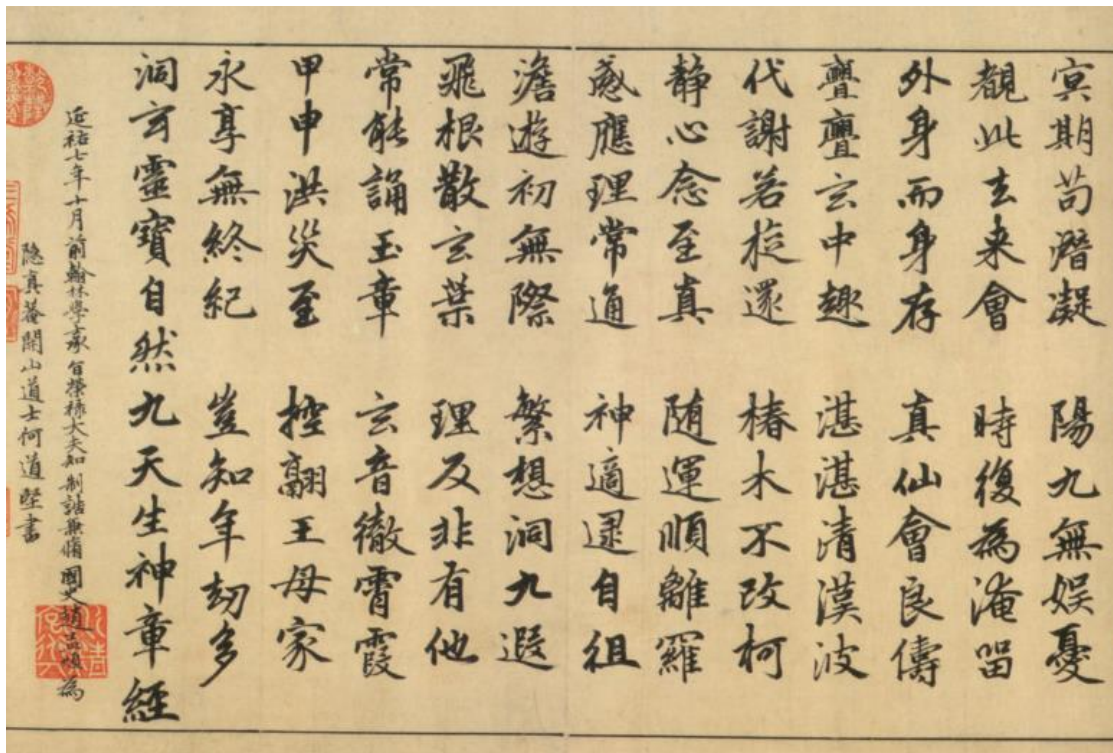 冥期苟潛凝 陽九無娛憂
覩此去来會 時復為淹留
外身而身存 真仙會良儔
亹亹玄中趣 湛湛清漢波
代謝若旋還 椿木不改柯
静心念至真 随運順離羅
感應理常通 神適逮自徂
澹遊初無際 繁想洞九遐
飛根散玄葉 理反非有他
常能誦玉章 玄音徹霄霞
甲申洪災至 控翮王母家
永享無終紀 豈知年劫多
洞玄靈寶自然九天生神章經
延祐七年十月前翰林學士承旨榮禄大夫知制誥兼脩國史趙孟頫為
隐真菴開山道士何道堅書